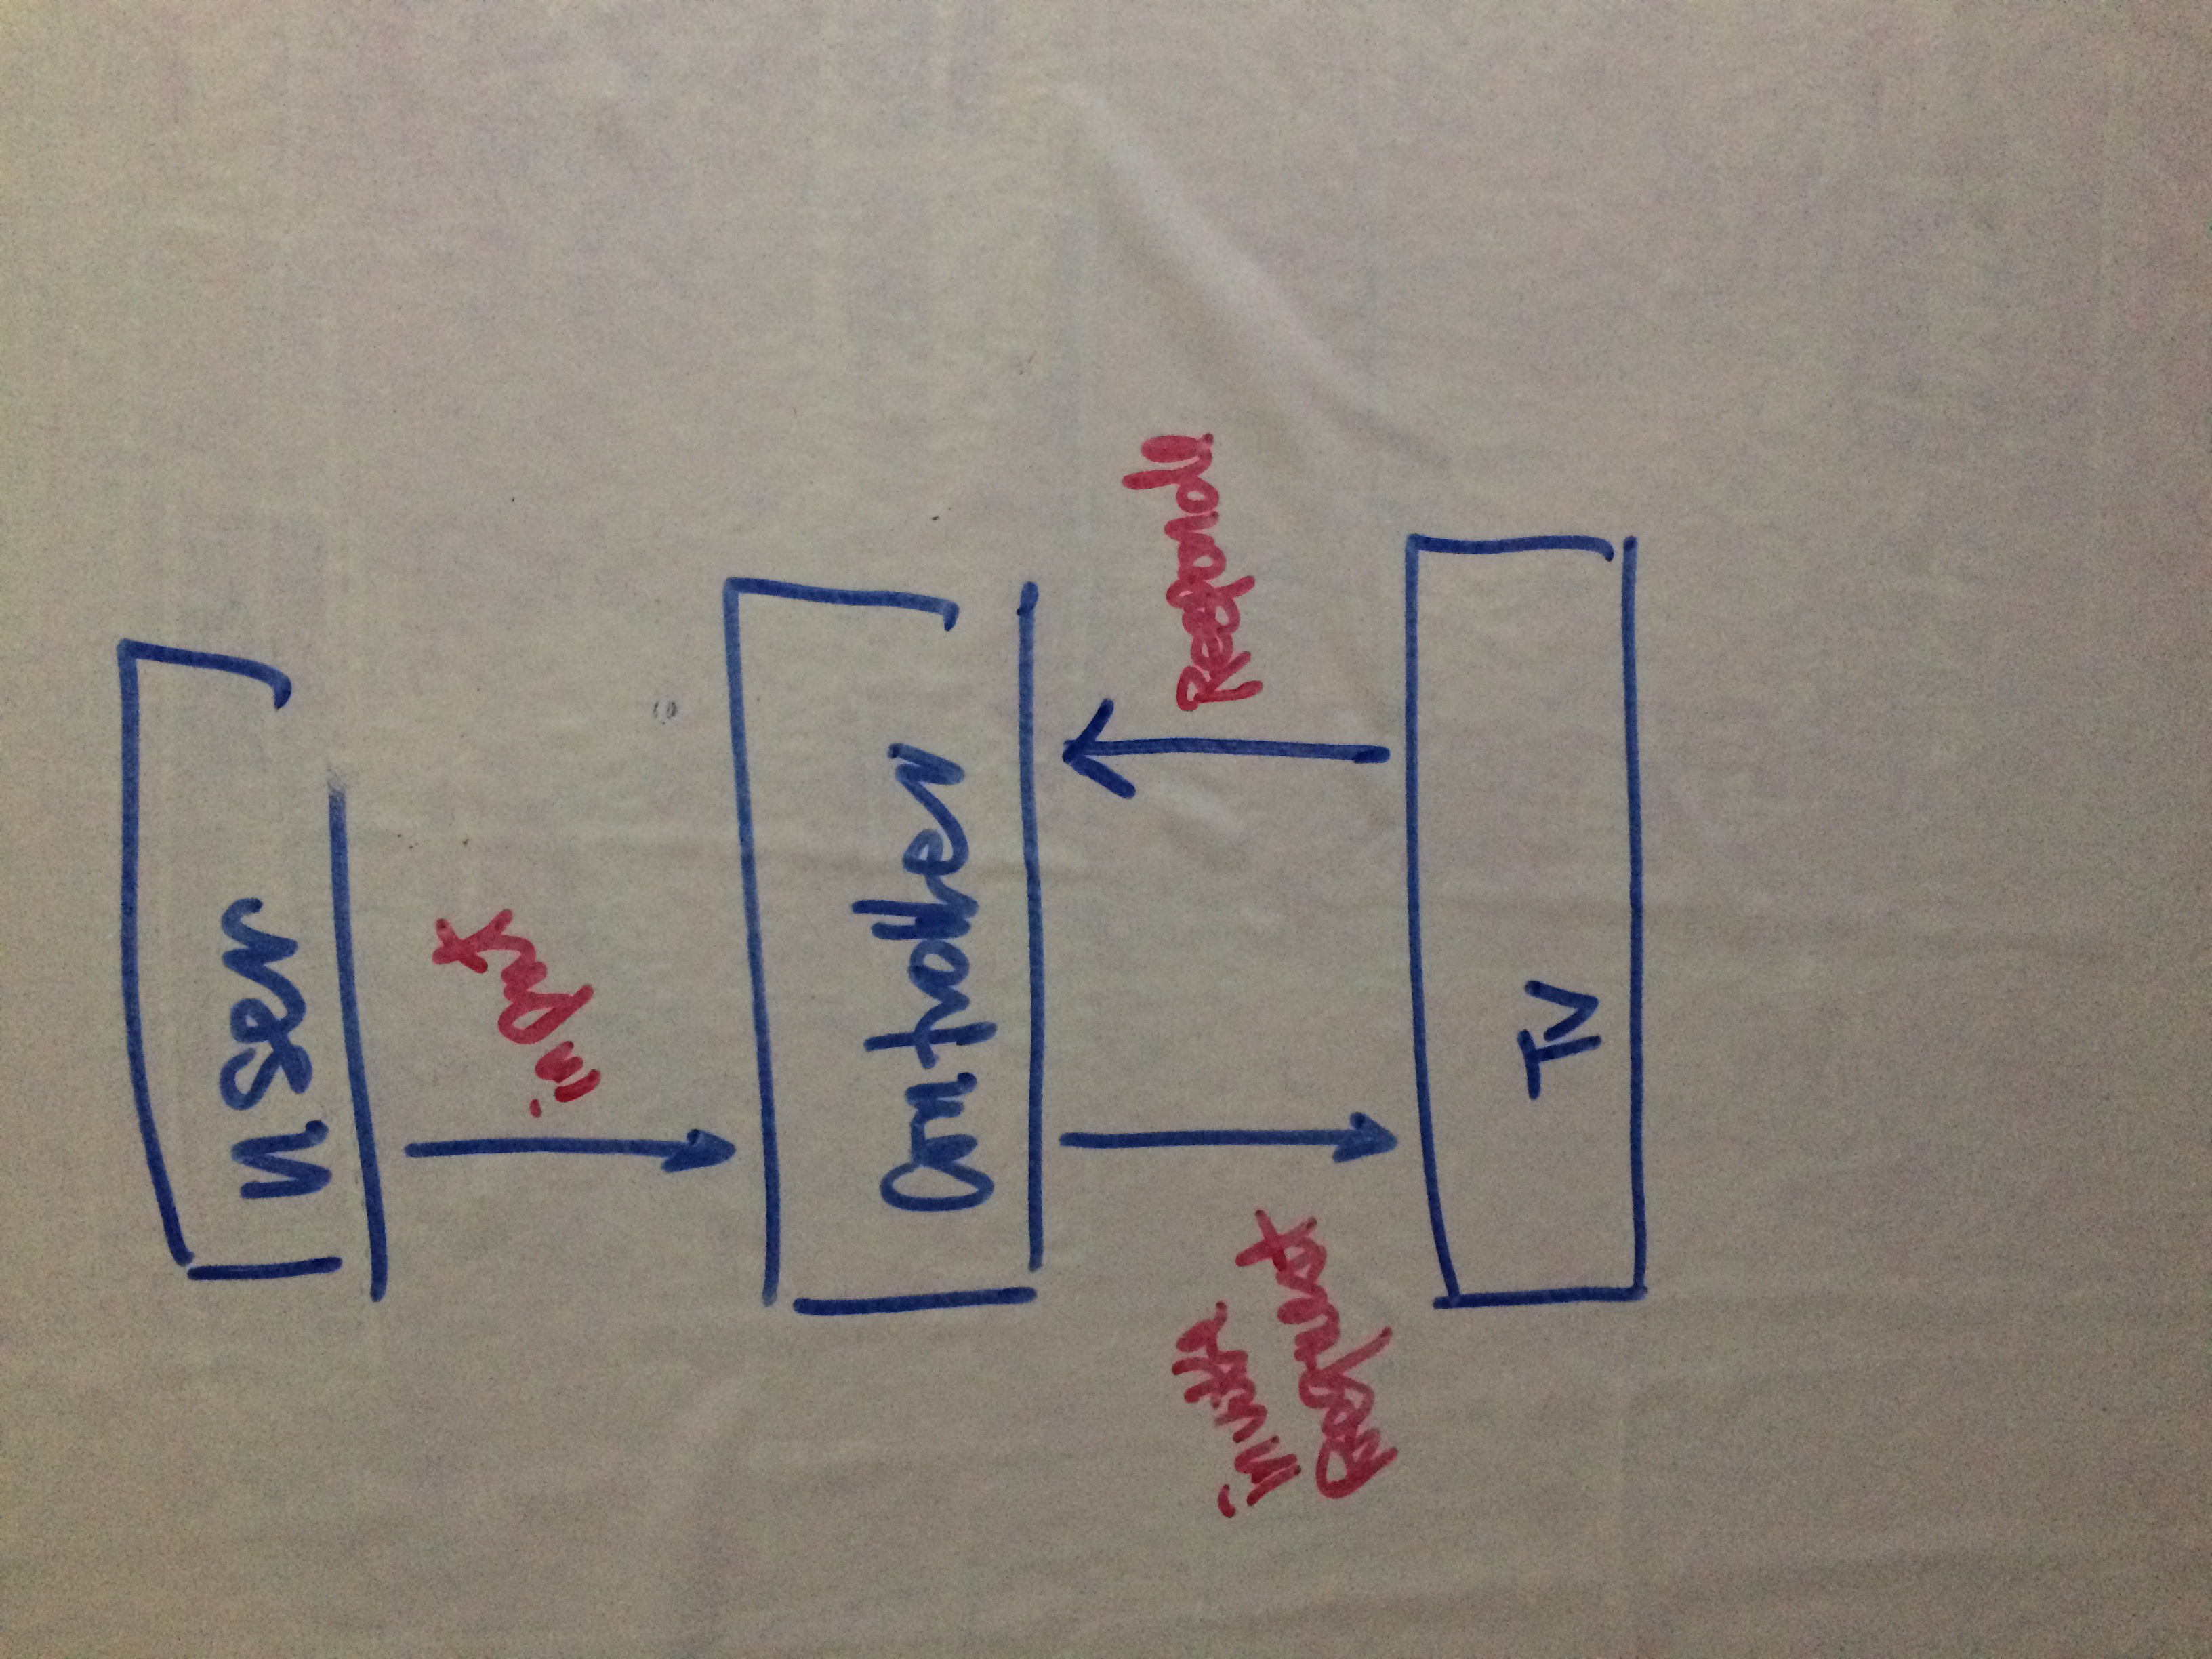 user
input
Controller
Request
Responde
TV